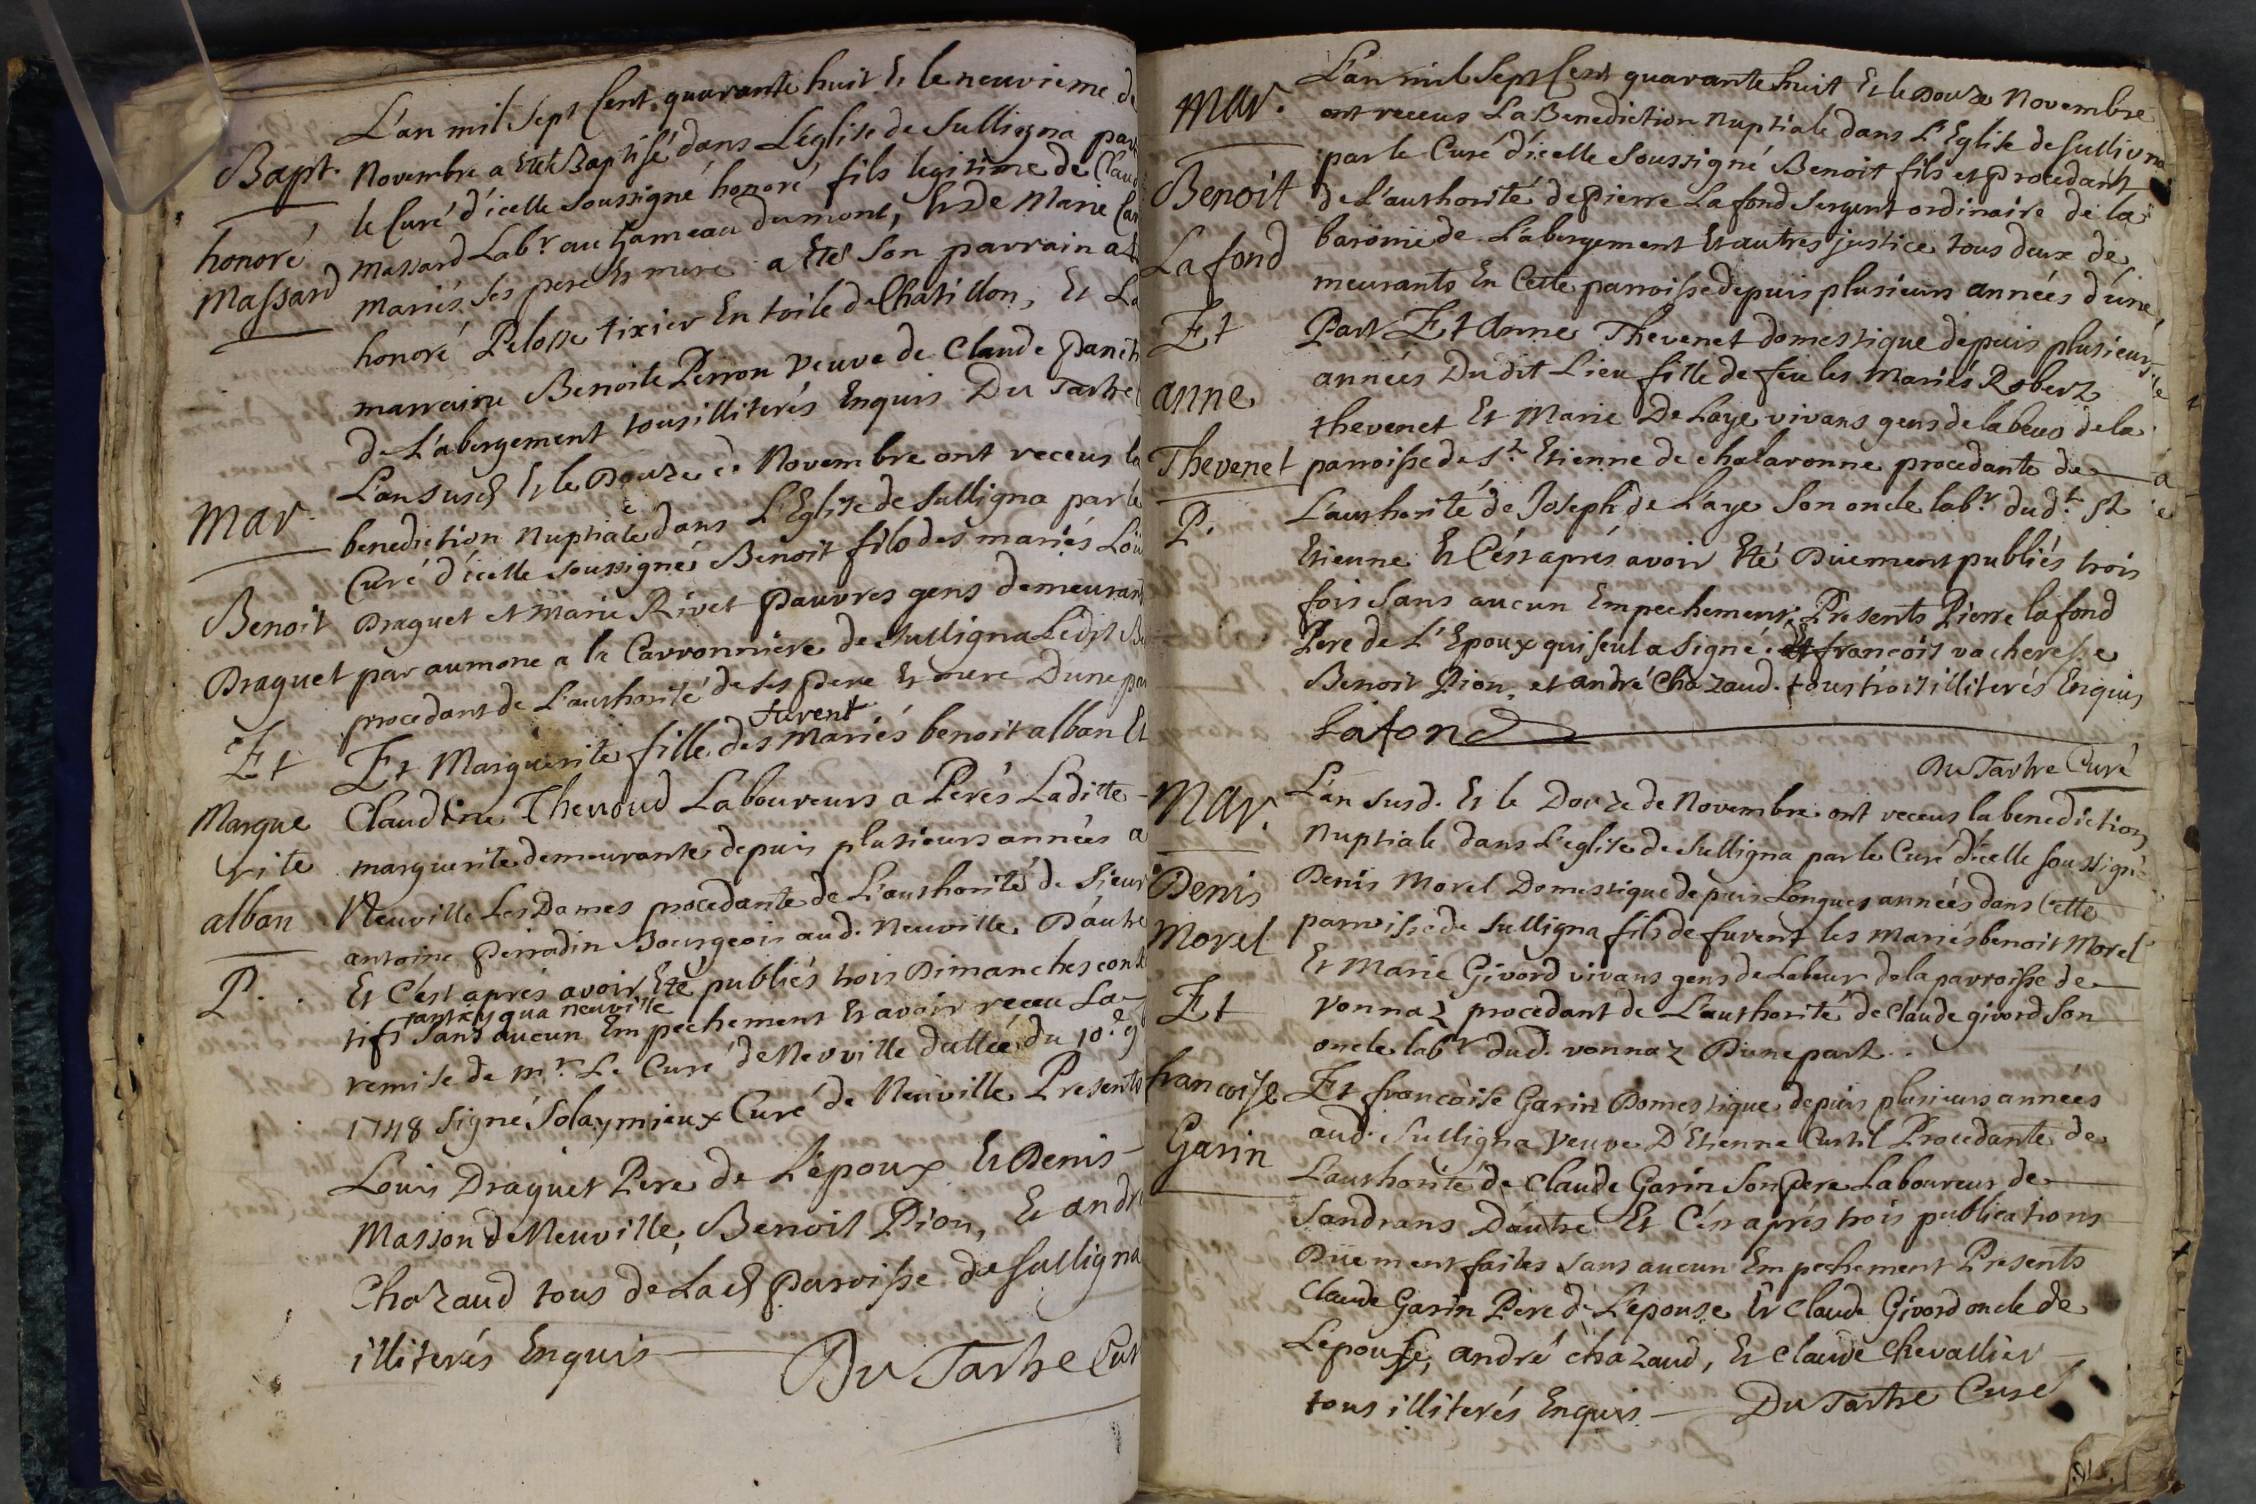 Bapt.
honoré
Massard
L'an mil sept Cent quarante huit Et le neuvieme de
Novembre a Eté Baptisé dans L'église de Sulligna par
le Curé d'icelle soussigné honoré fils legitime de Claud
Massard Labr au hameau dumont, Et de Marie
mariés ses pere Et mere a Eté son parrain
honoré Pelosse tixier En toile de Chatillon, Et La
marraine Benoite Perron veuve de Claude
de L'abergement tous illiterés Enquis Du Tartre
Mar.
Benoit
Draguet
Et
Margue
rite
alban
P.
L'an susd Et le Douze de Novembre ont receus la
benediction Nuptiale dans L'Eglise de Sulligna par le
Curé d'icelle soussigné Benoit fils des mariés Loui
Draguet et Marie Rivet pauvres gens demeurant
par aumone a la Carronniere de Sulligna Ledit Be
procedant de L'authorité de ses Pere Et mere D'une par
furent
Et Marguerite fille des Mariés benoit alban Et
Claudine Thenoud Laboureurs a Perés Laditte
marguerite demeurante depuis plusieurs années a
Neuville Les Dames procedante de L'authorité de Sieur
antoine Perradin Bourgeois aud. Neuville D'autre
Et C'est aprés avoir Eté publiés trois Dimanches
tant icy qua neuville
tifs sans aucun Empechement Et avoir receu La
remise de mr. Le Curé de Neuville dattée du 10.e 9
1748 signé Solaymieux Curé de Neuville Presents
Louis Draguet Pere de L'époux Et Denis
Masson de Neuville, Benoit Pion, Et andr
Chazaud tous de Lad parroisse de Sulligna
illiterés Enquis Du Tartre Cur
Mar.
Benoit
Lafond
Et
anne
Thevenet
P.
L'an mil Sept Cent quarante huit Et le Douze Novembre
ont receus La Benediction Nuptiale dans L'Eglise de Sulligna
par le Curé d'icelle Soussigné Benoit fils et procedant
de L'authorité de Pierre Lafond Sergent ordinaire de la
baronie de L'abergement Et autres justice tous deux de
meurants En Cette parroisse depuis plusieurs années d'une
Part Et Anne Thevenet domestique depuis plusieurs
années Dudit Lieu fille de feu les Mariés Robert
thevenet Et Marie De Laye vivans gens de labeur de la
parroisse de St. Etienne de chalaronne procedante de
L'authorité de Joseph de Laye Son oncle labr. dudt. St
Etienne Et C'est aprés avoir Eté Duement publiés trois
fois Sans aucun Empechement, Presents Pierre lafond
Pere de L'Epoux qui seul a Signé. Et francois vacheresse
Benoit Pion, et andré Chazaud. tous trois illiterés Enquis
Lafond
Du Tartre Curé
Mar.
Denis
Morel
Et
francoise
Garin
L'an susd. Et le Douze de Novembre ont receus la benediction
Nuptiale dans L'eglise de Sulligna par le Curé d'icelle soussigné
Denis Morel Domestique depuis Longues années dans Cette
parroisse de Sulligna fils de furent les Mariés benoit Morel
Et Marie Givord vivans gens de Labeur de la parroisse de
vonnaz procedant de L'authorité de Claude givord Son
oncle labr dud. vonnaz D'une part.
Et francoise Garin Domestique depuis plusieurs années
aud. Sulligna veuve D'Etienne Curtil Procedante de
L'authorité de Claude Garin Son pere Laboureur de
Sandrans D'autre Et C'est aprés trois publications
Duement faites sans aucun Empechement Presents
Claude Garin Pere de L'epouse Et Claude Givord oncle de
L'epouse, andré chazaud, Et Claude Chevallier
tous illiterés Enquis Du Tartre Curé